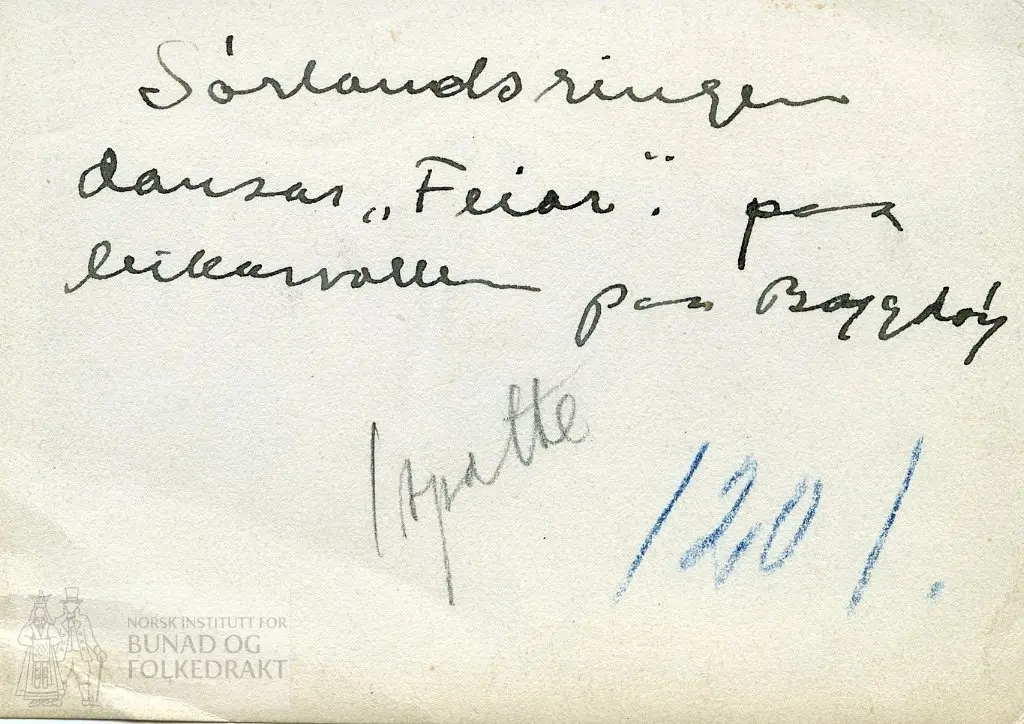 Sörlandsringen
dansar „Feiar". paa
leikarvollen paa Bygdöy
1 spalte
1201.
NORSK INSTITUTT FOR
BUNAD OG
FOLKEDRAKT